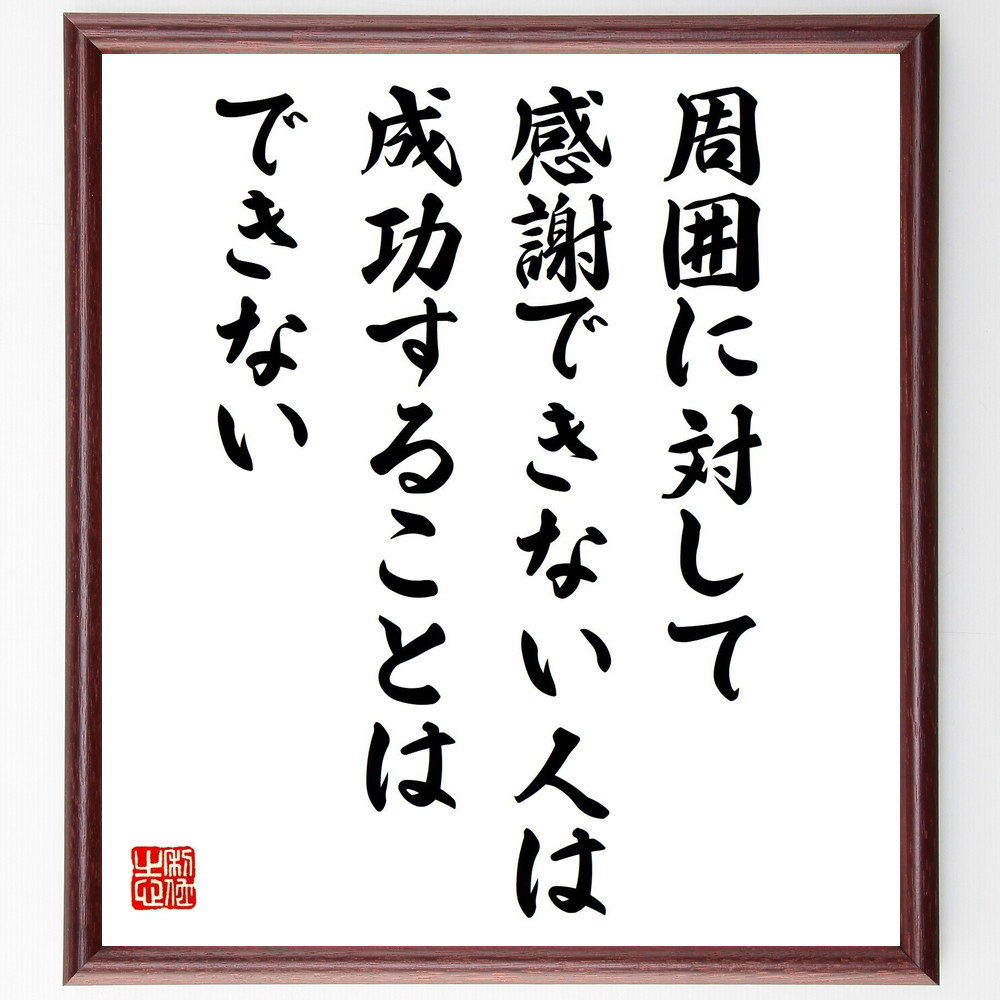 周囲に対して
感謝できない人は
成功することは
できない